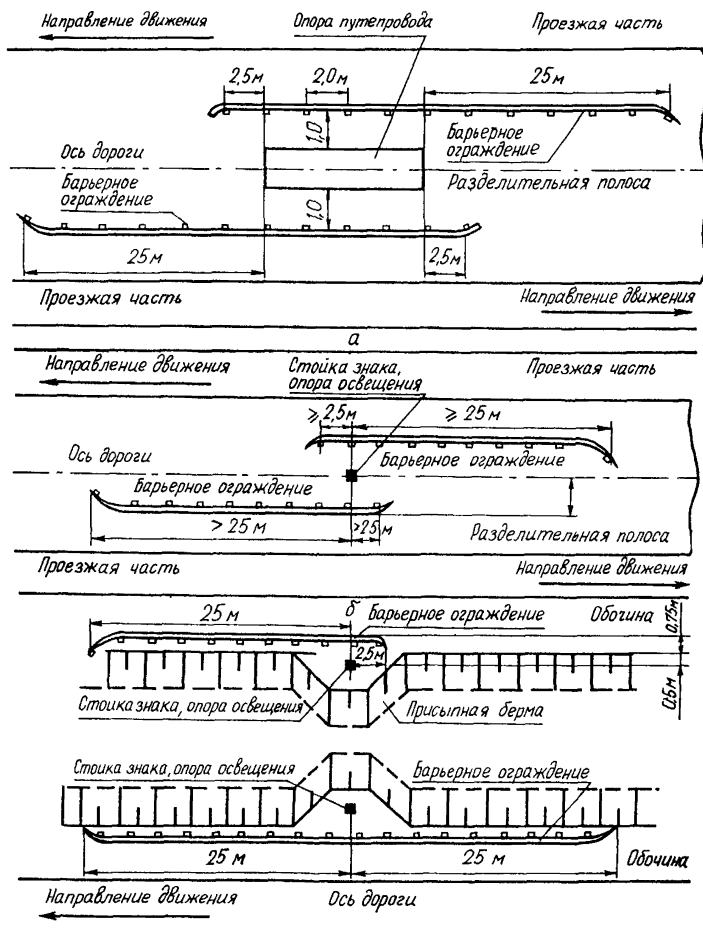 Направление движения
Опора путепровода
Проезжая часть
2,5м
2,0м
25м
1,0
Барьерное
ограждение
Ось дороги
Разделительная полоса
Барьерное
ограждение
1,0
25м
2,5м
Проезжая часть
Направление движения
а
Направление движения
Стойка знака,
опора освещения
Проезжая часть
⩾2,5м
⩾25м
Ось дороги
Барьерное ограждение
Барьерное ограждение
>25м
>25м
Разделительная полоса
Проезжая часть
Направление движения
б
25м
Барьерное ограждение
Обочина
0,75м
2,5м
Стойка знака, опора освещения
Присыпная берма
0,5м
Стойка знака, опора освещения
Барьерное ограждение
25м
25м
Обочина
Направление движения
Ось дороги